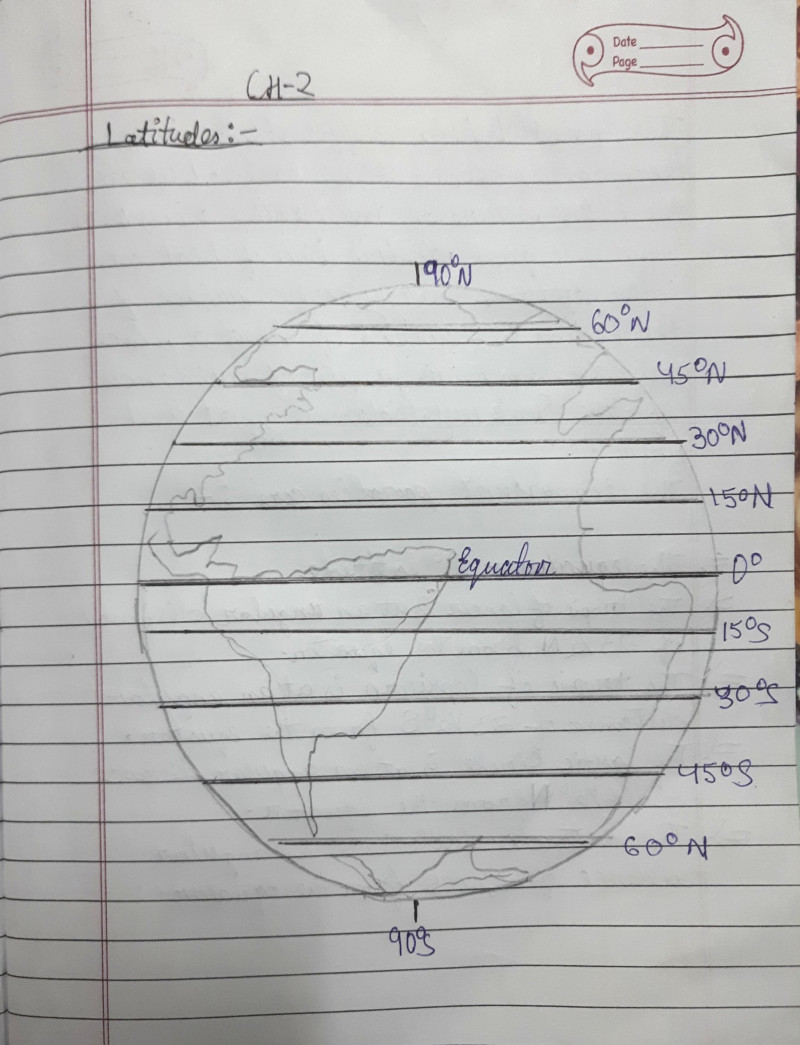 Date
Page
CH-2
Latitudes:-
90°N
60°N
45°N
30°N
15°N
Equator
0°
15°S
30°S
45°S
60°N
90°S